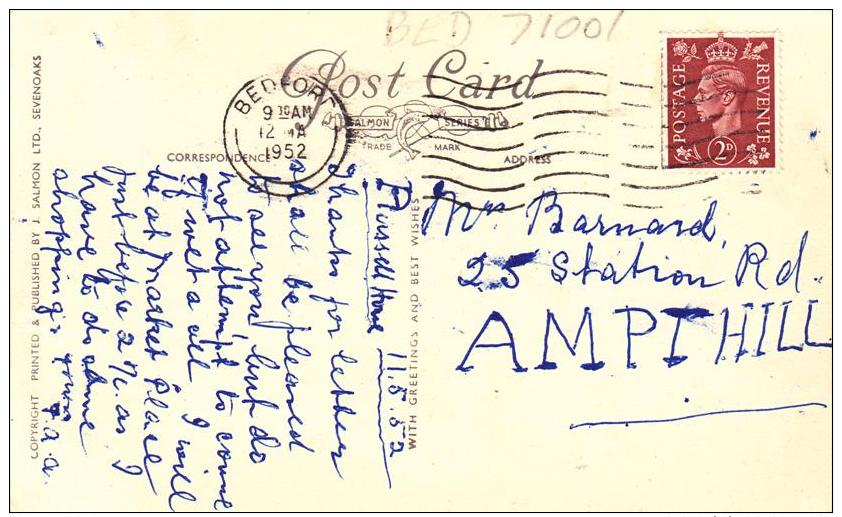 BED 71001
Post Card
BEDFORD
9 30 AM
12 MA
1952
SALMON SERIES
TRADE MARK
CORRESPONDENCE
ADDRESS
POSTAGE REVENUE
2D
COPYRIGHT PRINTED & PUBLISHED BY J. SALMON LTD., SEVENOAKS
WITH GREETINGS AND BEST WISHES
Russell House 11.5.52
Thanks for letter
shall be pleased
to see you but do
not attempt to come
if wet a all I will
be at Market Place
Just before 2 as I
have to do some
shopping yours
a.a.
Mrs Barnard,
25 Station Rd.
AMPTHILL